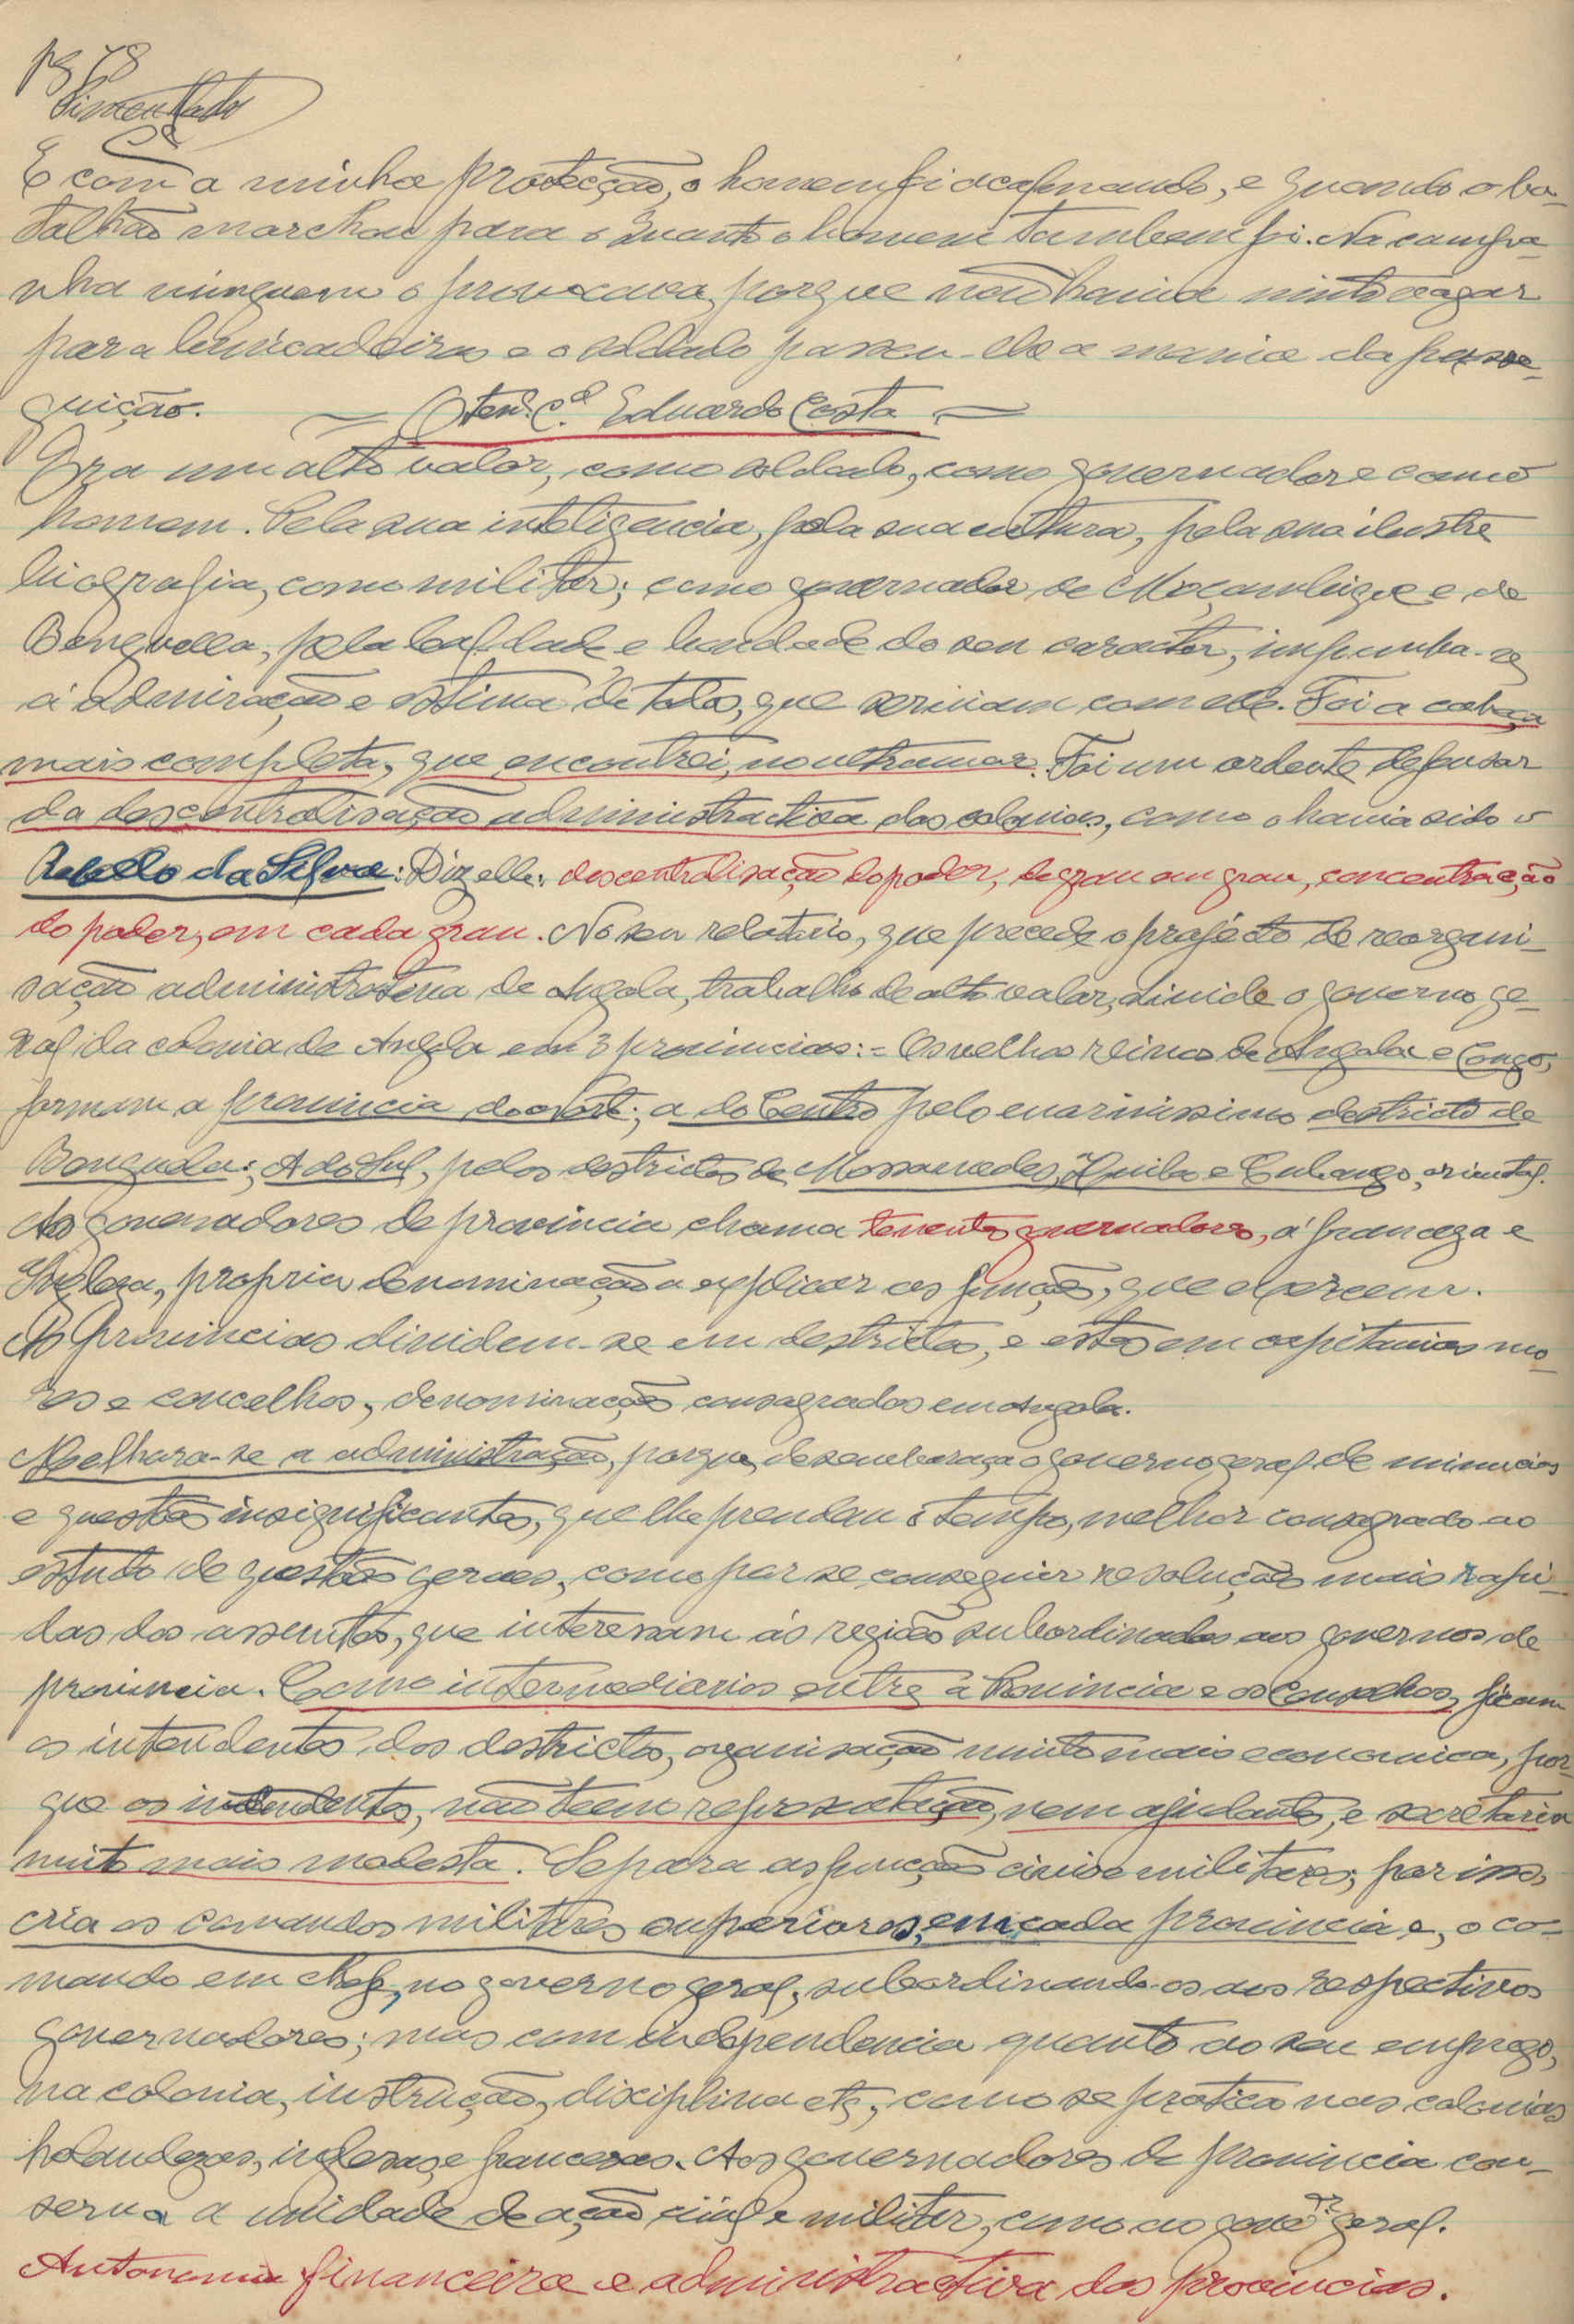 1878
E com a minha protecção, o homem foi acalmando, e quando o ba-
talhão marchou para o Cuanto o homem tambem foi. Na campa-
nha ninguem o provocava, porque não havia muito vagar
para brincadeiras e o soldado passou-lhe a mania da perse-
guição.
O ten. C.el Eduardo Costa
Era um alto valor, como soldado, como governador e como
homem. Pela sua inteligencia, pela sua cultura, pela sua ilustre
biografia, como militar; como governador de Moçambique e de
Benguella, pela lealdade e bondade do seu caracter, impunha-se
á admiração e estima de todos, que serviam com ele. Foi a cabeça
mais completa, que encontrei, no ultramar. Foi um ardente defensor
da descentralisação administractiva das colonias, como o havia sido o
Rebello da Silva: Diz elle: descentralisação do poder, de grau em grau, concentração
do poder, em cada grau. No seu relatorio, que precede o projécto de reorgani-
sação administrativa de Angola, trabalho de alto valor, divide o governo ge-
ral da colonia de Angola em 3 provincias:- Os velhos reinos de Angola e Congo,
formam a provincia do Norte; a do Centro pelo enormissimo destricto de
Benguela; A do Sul, pelos destrictos de Mossamedes, Huila e Cubango, oriental.
Aos governadores de provincia chama tenentes governadores, á franceza e
Ingleza, propria denominação a explicar as funções, que exercem.
As Provincias dividem-se em destrictos, e estes em capitanias mo-
res e concelhos, denominações consagradas em Angola.
Melhora-se a administração, porque, desembaraça o governo geral de minucias
e questões insignificantes, que lhe prendem o tempo, melhor consagrado ao
estudo de questões geraes, como por se conseguir resolução mais rapi-
das dos assuntos, que interessam ás regiões subordinadas aos governos de
provincia. Como intermediarios entre a Provincia e os Concelhos, ficam
os intendentes dos destrictos, organisação muito mais economica, por-
que os intendentes, não teem representação, nem ajudantes, e secretaria
muito mais modesta. Separa as funções civis e militares; por isso,
cria os comandos militares superiores, em cada provincia e, o co-
mando em chefe, no governo geral, subordinando-os aos respectivos
governadores; mas com independencia quanto ao seu emprego,
na colonia, instrução, disciplina etc, como se pratica nas colonias
holandezas, inglesas e francesas. Aos governadores de provincia con-
serva a unidade de ação civil e militar, como ao gov.or geral.
Autonomia financeira e administractiva das provincias.